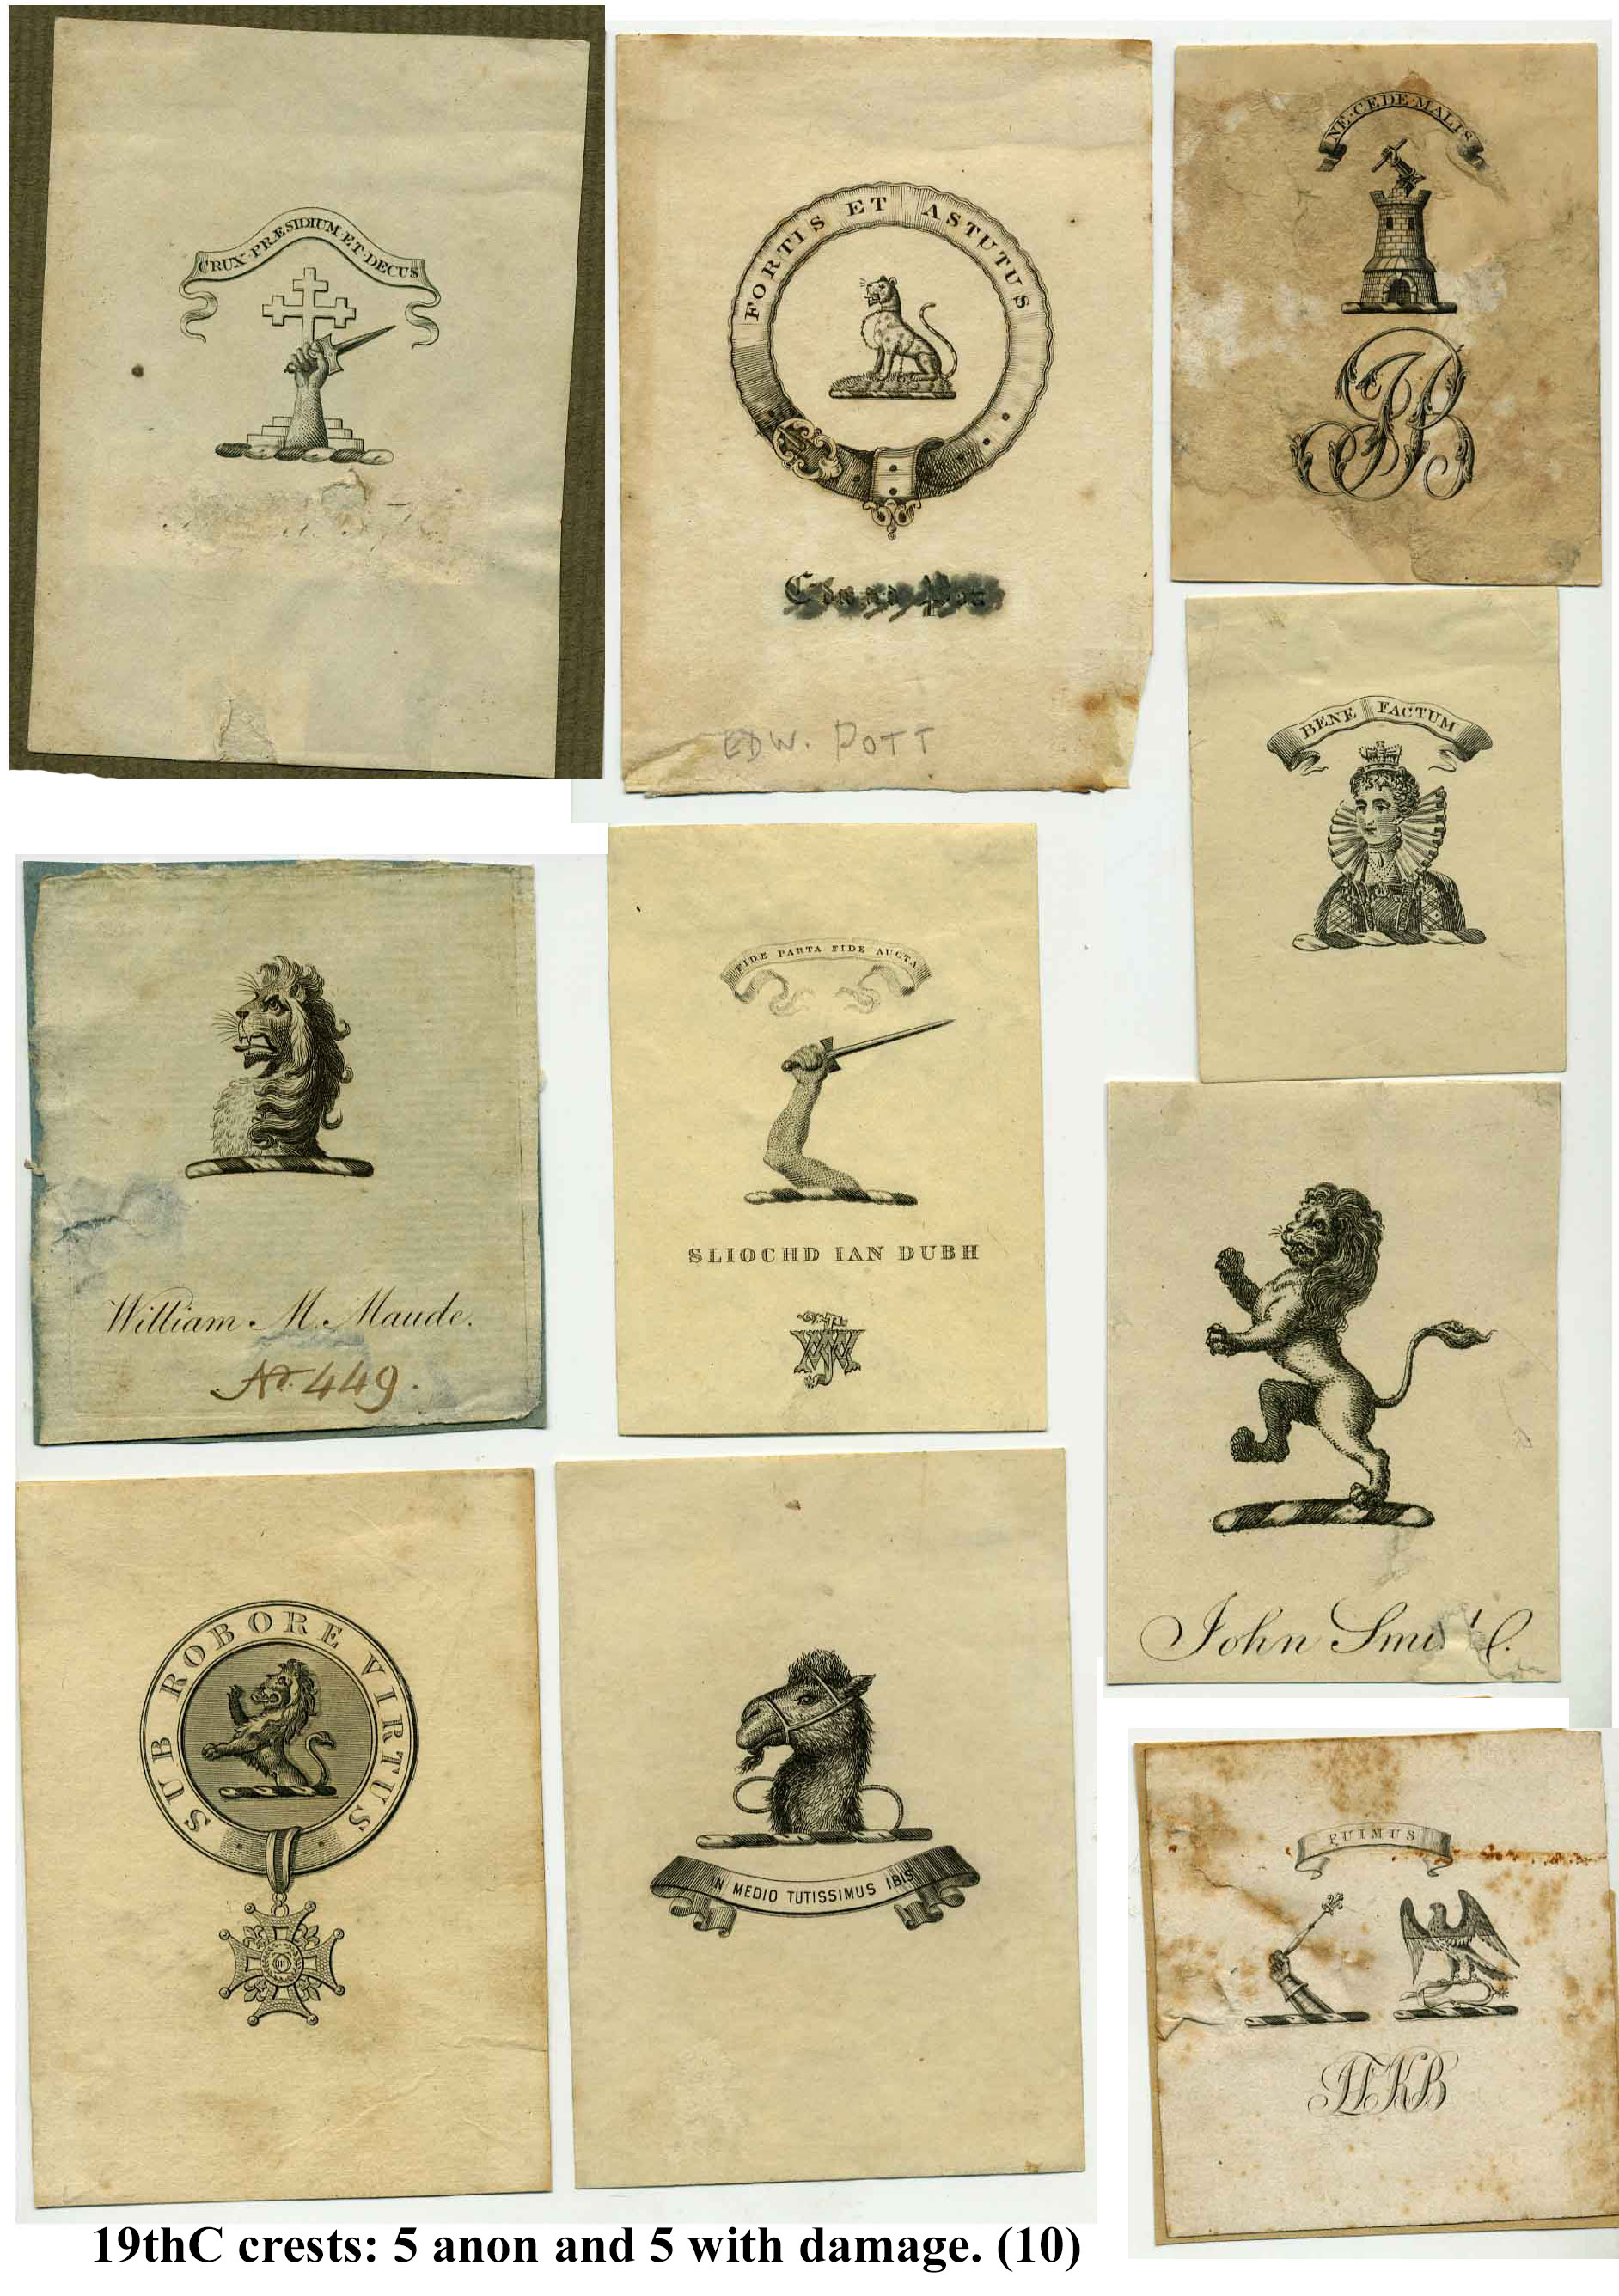 CRUX·PRÆSIDIUM·ET·DECUS
FORTIS ET ASTUTUS
EDW. POTT
NE·CEDE·MALIS
BENE FACTUM
William M. Maude.
No. 449.
FIDE PARTA FIDE AUCTA
SLIOCHD IAN DUBH
John
SUB ROBORE VIRTUS
IN MEDIO TUTISSIMUS IBIS
FUIMUS
19thC crests: 5 anon and 5 with damage. (10)